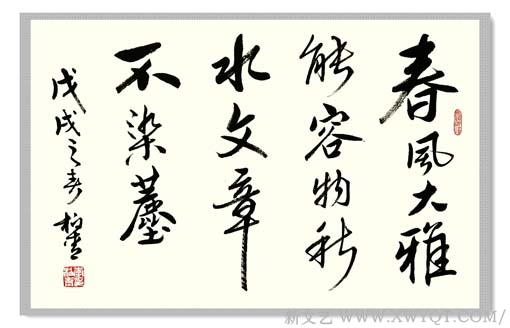 春風大雅
能容物秋
水文章
不染塵
戊戌之春
新文艺